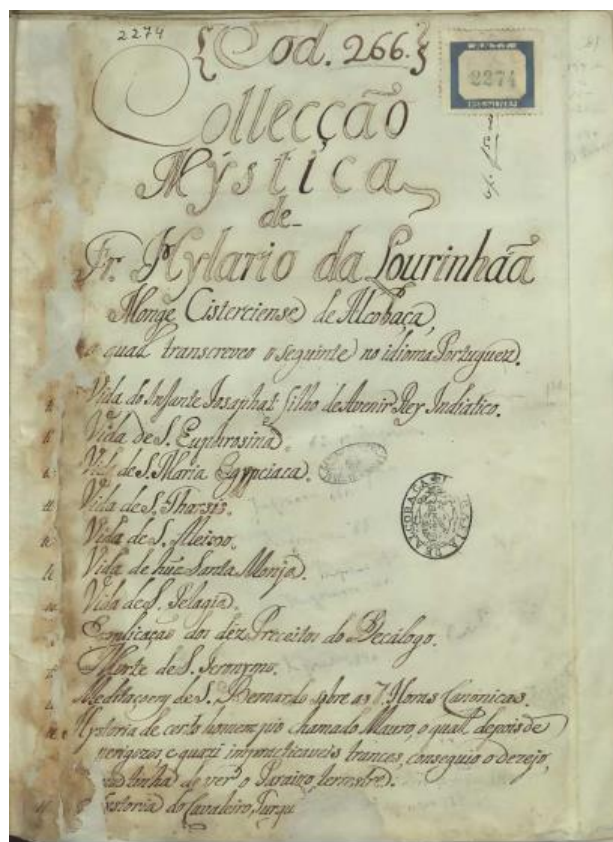 2274
{Cod. 266.}
2274
Collecção
Mystica
de
Fr. Hylario da Lourinhãa
Monge Cisterciense de Alcobaça,
o qual transcreveo o seguinte no idioma Portuguez.
Vida do Infante Josaphat filho de Avenir Rey Indiatico.
Vida de S. Euphrosina.
Vida de S. Maria Egypciaca.
Vida de S. Tharsis.
Vida de S.
Vida de hũa Santa Monja.
Vida de S. Pelagia.
Explicação dos dez Preceitos do Decálogo.
Morte de S. Jeronymo.
Meditaçoens de S. Bernardo sobre as 7. Horas Canonicas.
Hystoria de certo homem pio chamado Mauro, o qual depois de
perigozos, e quazi impracticaveis trances, conseguio o dezejo,
tinha de ver o Paraizo terrestre.
Historia do Cavaleiro